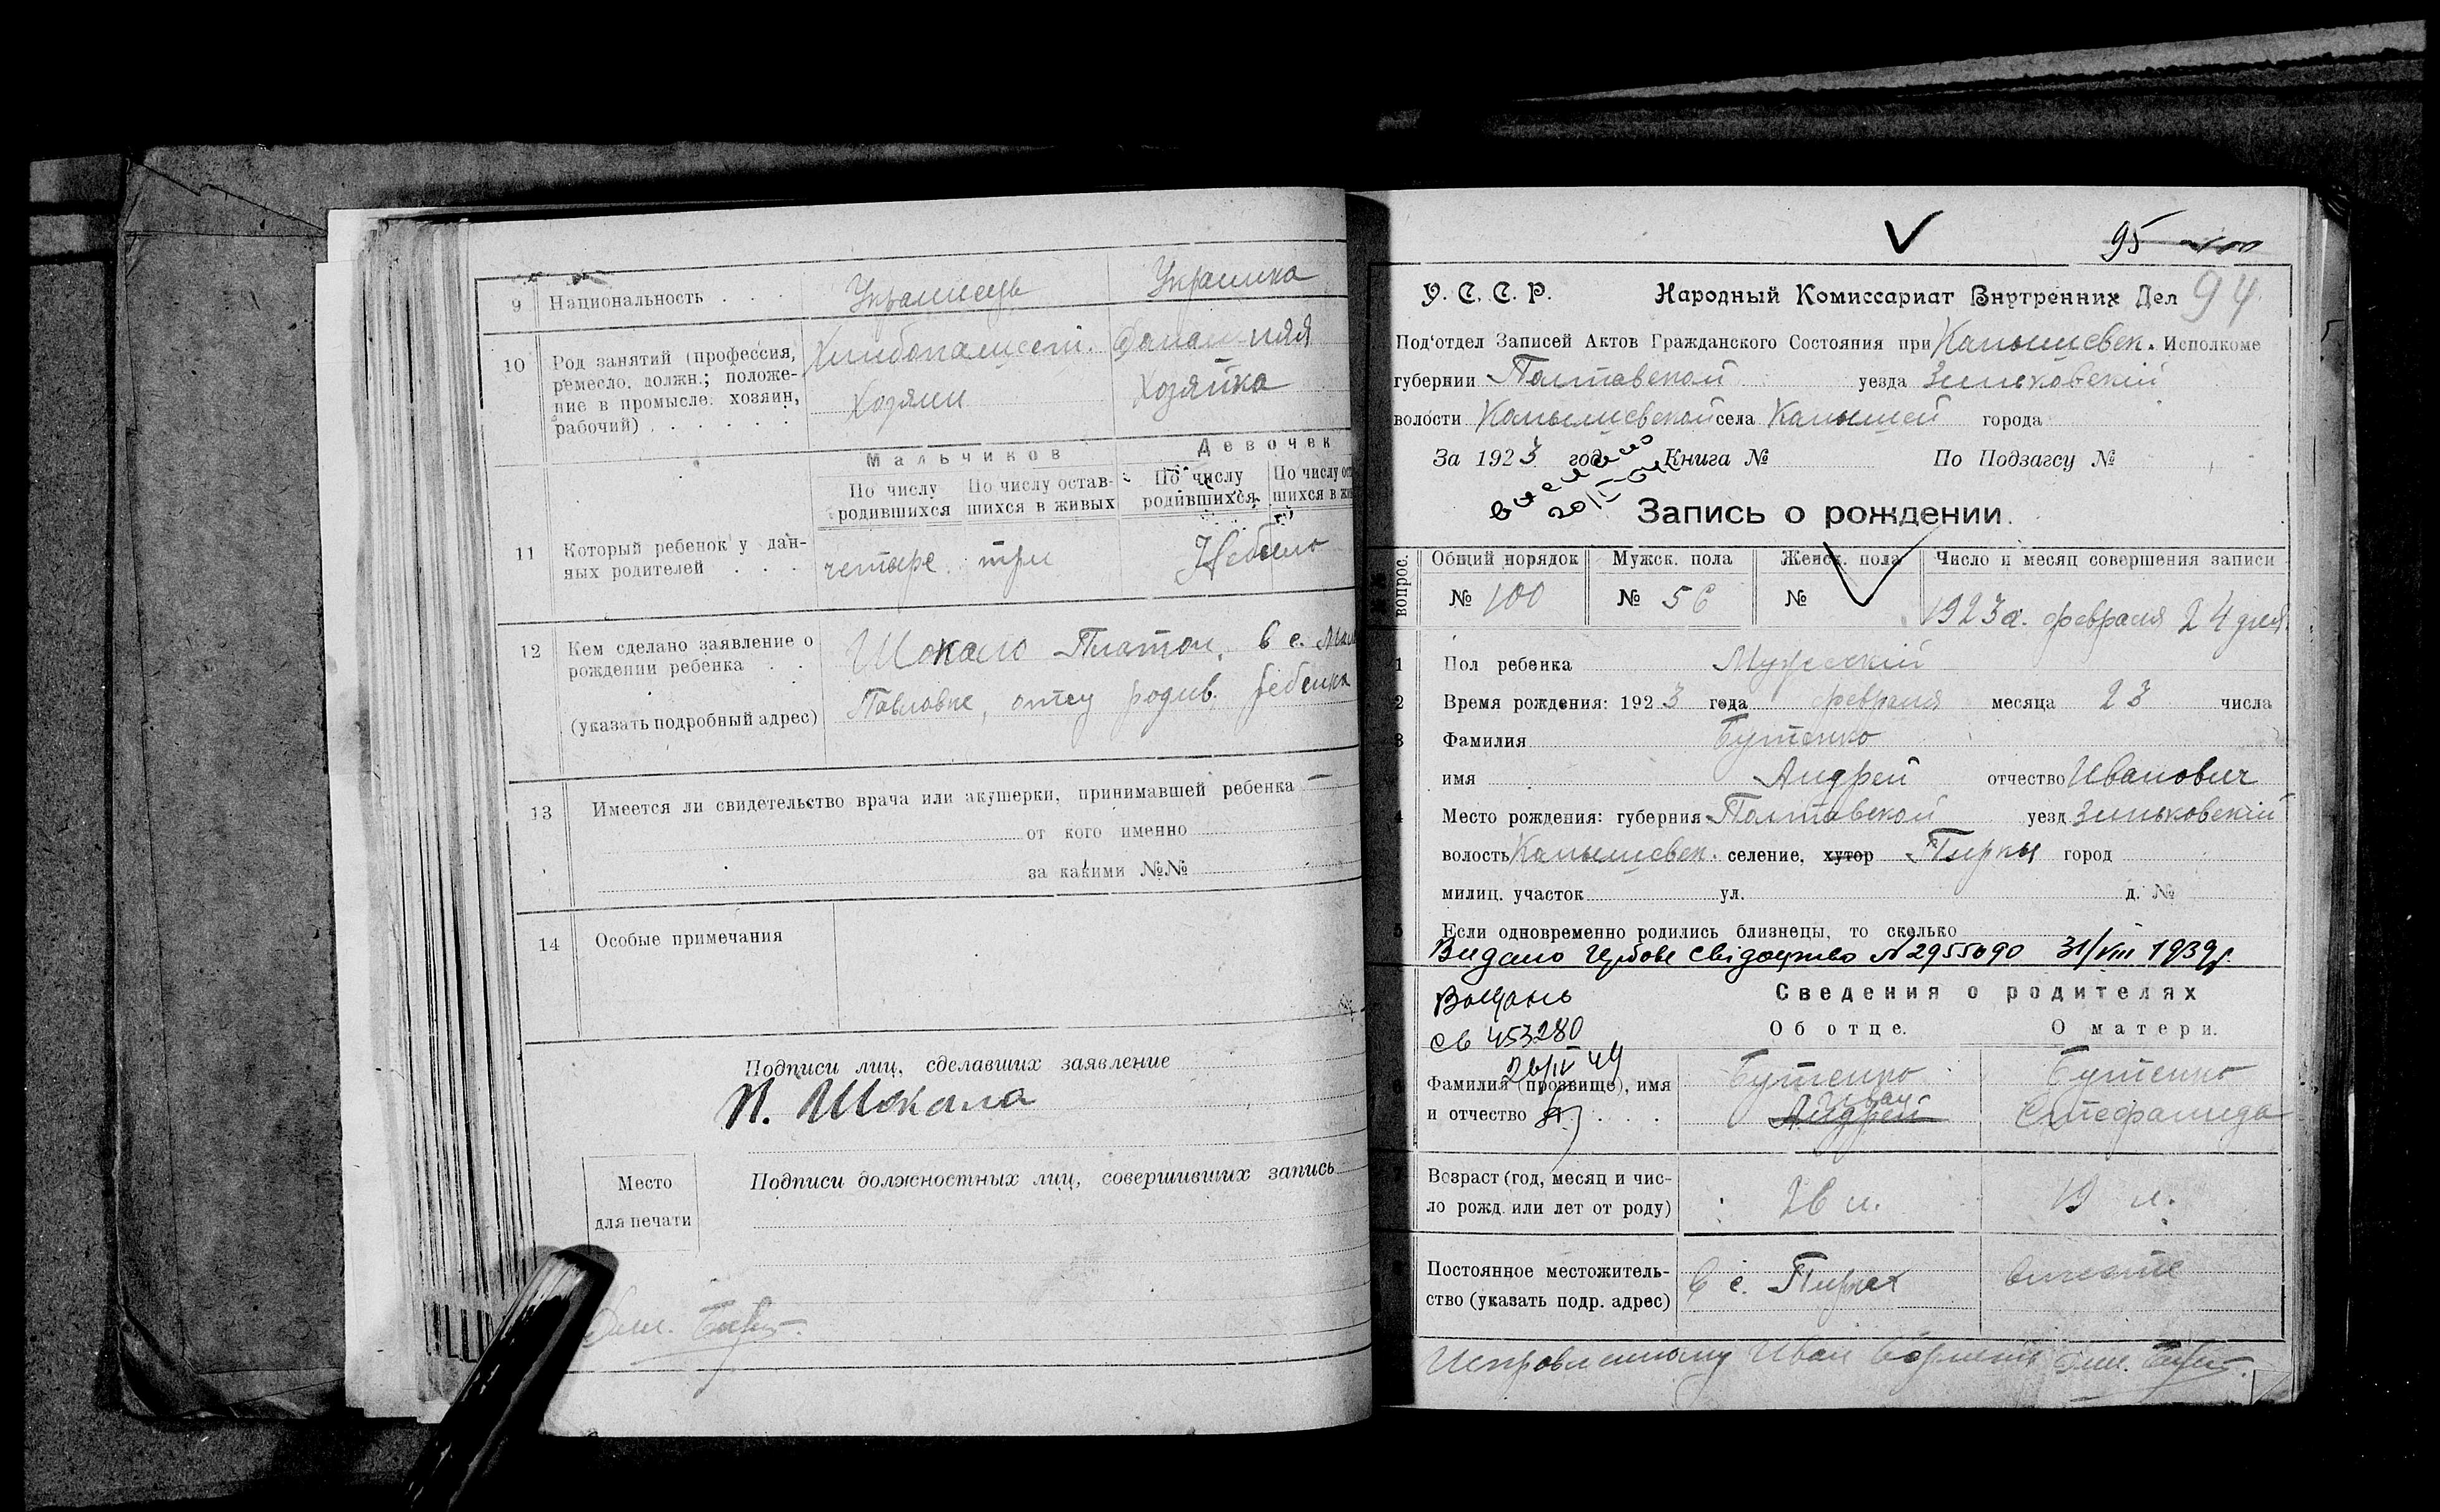 9 Национальность . . . Украинець Украинка
10 Род занятий (профессия, ремесло, должн.; положе-
ние в промысле: хозяин, рабочий) . . . . . .
Хозяин
Домашняя Хозяйка
Мальчиков Девочек
По числу родившихся По числу остав-
шихся в живых По числу родившихся По числу
шихся в
11 Который ребенок у дан-
ных родителей . . . четыре три Небыло
12 Кем сделано заявление о
рождении ребенка . .
(указать подробный адрес)
Шокало Платон, в с.
Павловке, отец родив. ребенка
13 Имеется ли свидетельство врача или акушерки, принимавшей ребенка —
от кого именно
за какими №№
14 Особые примечания
Подписи лиц, сделавших заявление
П. Шокала
Место
для печати
Подписи должностных лиц, совершивших запись
95
У. С. С. Р. Народный Комиссариат Внутренних Дел 94
Под'отдел Записей Актов Гражданского Состояния при Камышевск. Исполкоме
губернии Полтавской уезда Зиньковский
волости Камышевской села Камышей города
За 1923 год Книга № По Подзагсу №
Запись о рождении.
вопрос. Общий порядок Мужск. пола Женск. пола Число и месяц совершения записи
№ 100 № 56 № 1923 г. февраля 24 дня.
1 Пол ребенка Мужеский
2 Время рождения: 1923 года февраля месяца 23 числа
3 Фамилия Бутенко
имя Андрей отчество Иванович
4 Место рождения: губерния Полтавской уезд Зиньковский
волость Камышевск. селение, хутор Пирки город
милиц. участок ул. д. №
5 Если одновременно родились близнецы, то сколько
Видано свідоцтво N 2955090 31/VIII 1939р.
Сведения о родителях
Св 453280
26/IV 44
Об отце. О матери.
Фамилия (прозвище), имя
и отчество . . . .
Бутенко
Иван
Андрей
Бутенко
Стефанида
Возраст (год, месяц и чис-
ло рожд. или лет от роду) 26 л. 19 л.
Постоянное местожитель-
ство (указать подр. адрес) в с. Пирках вместе
Исправленному Иван верить